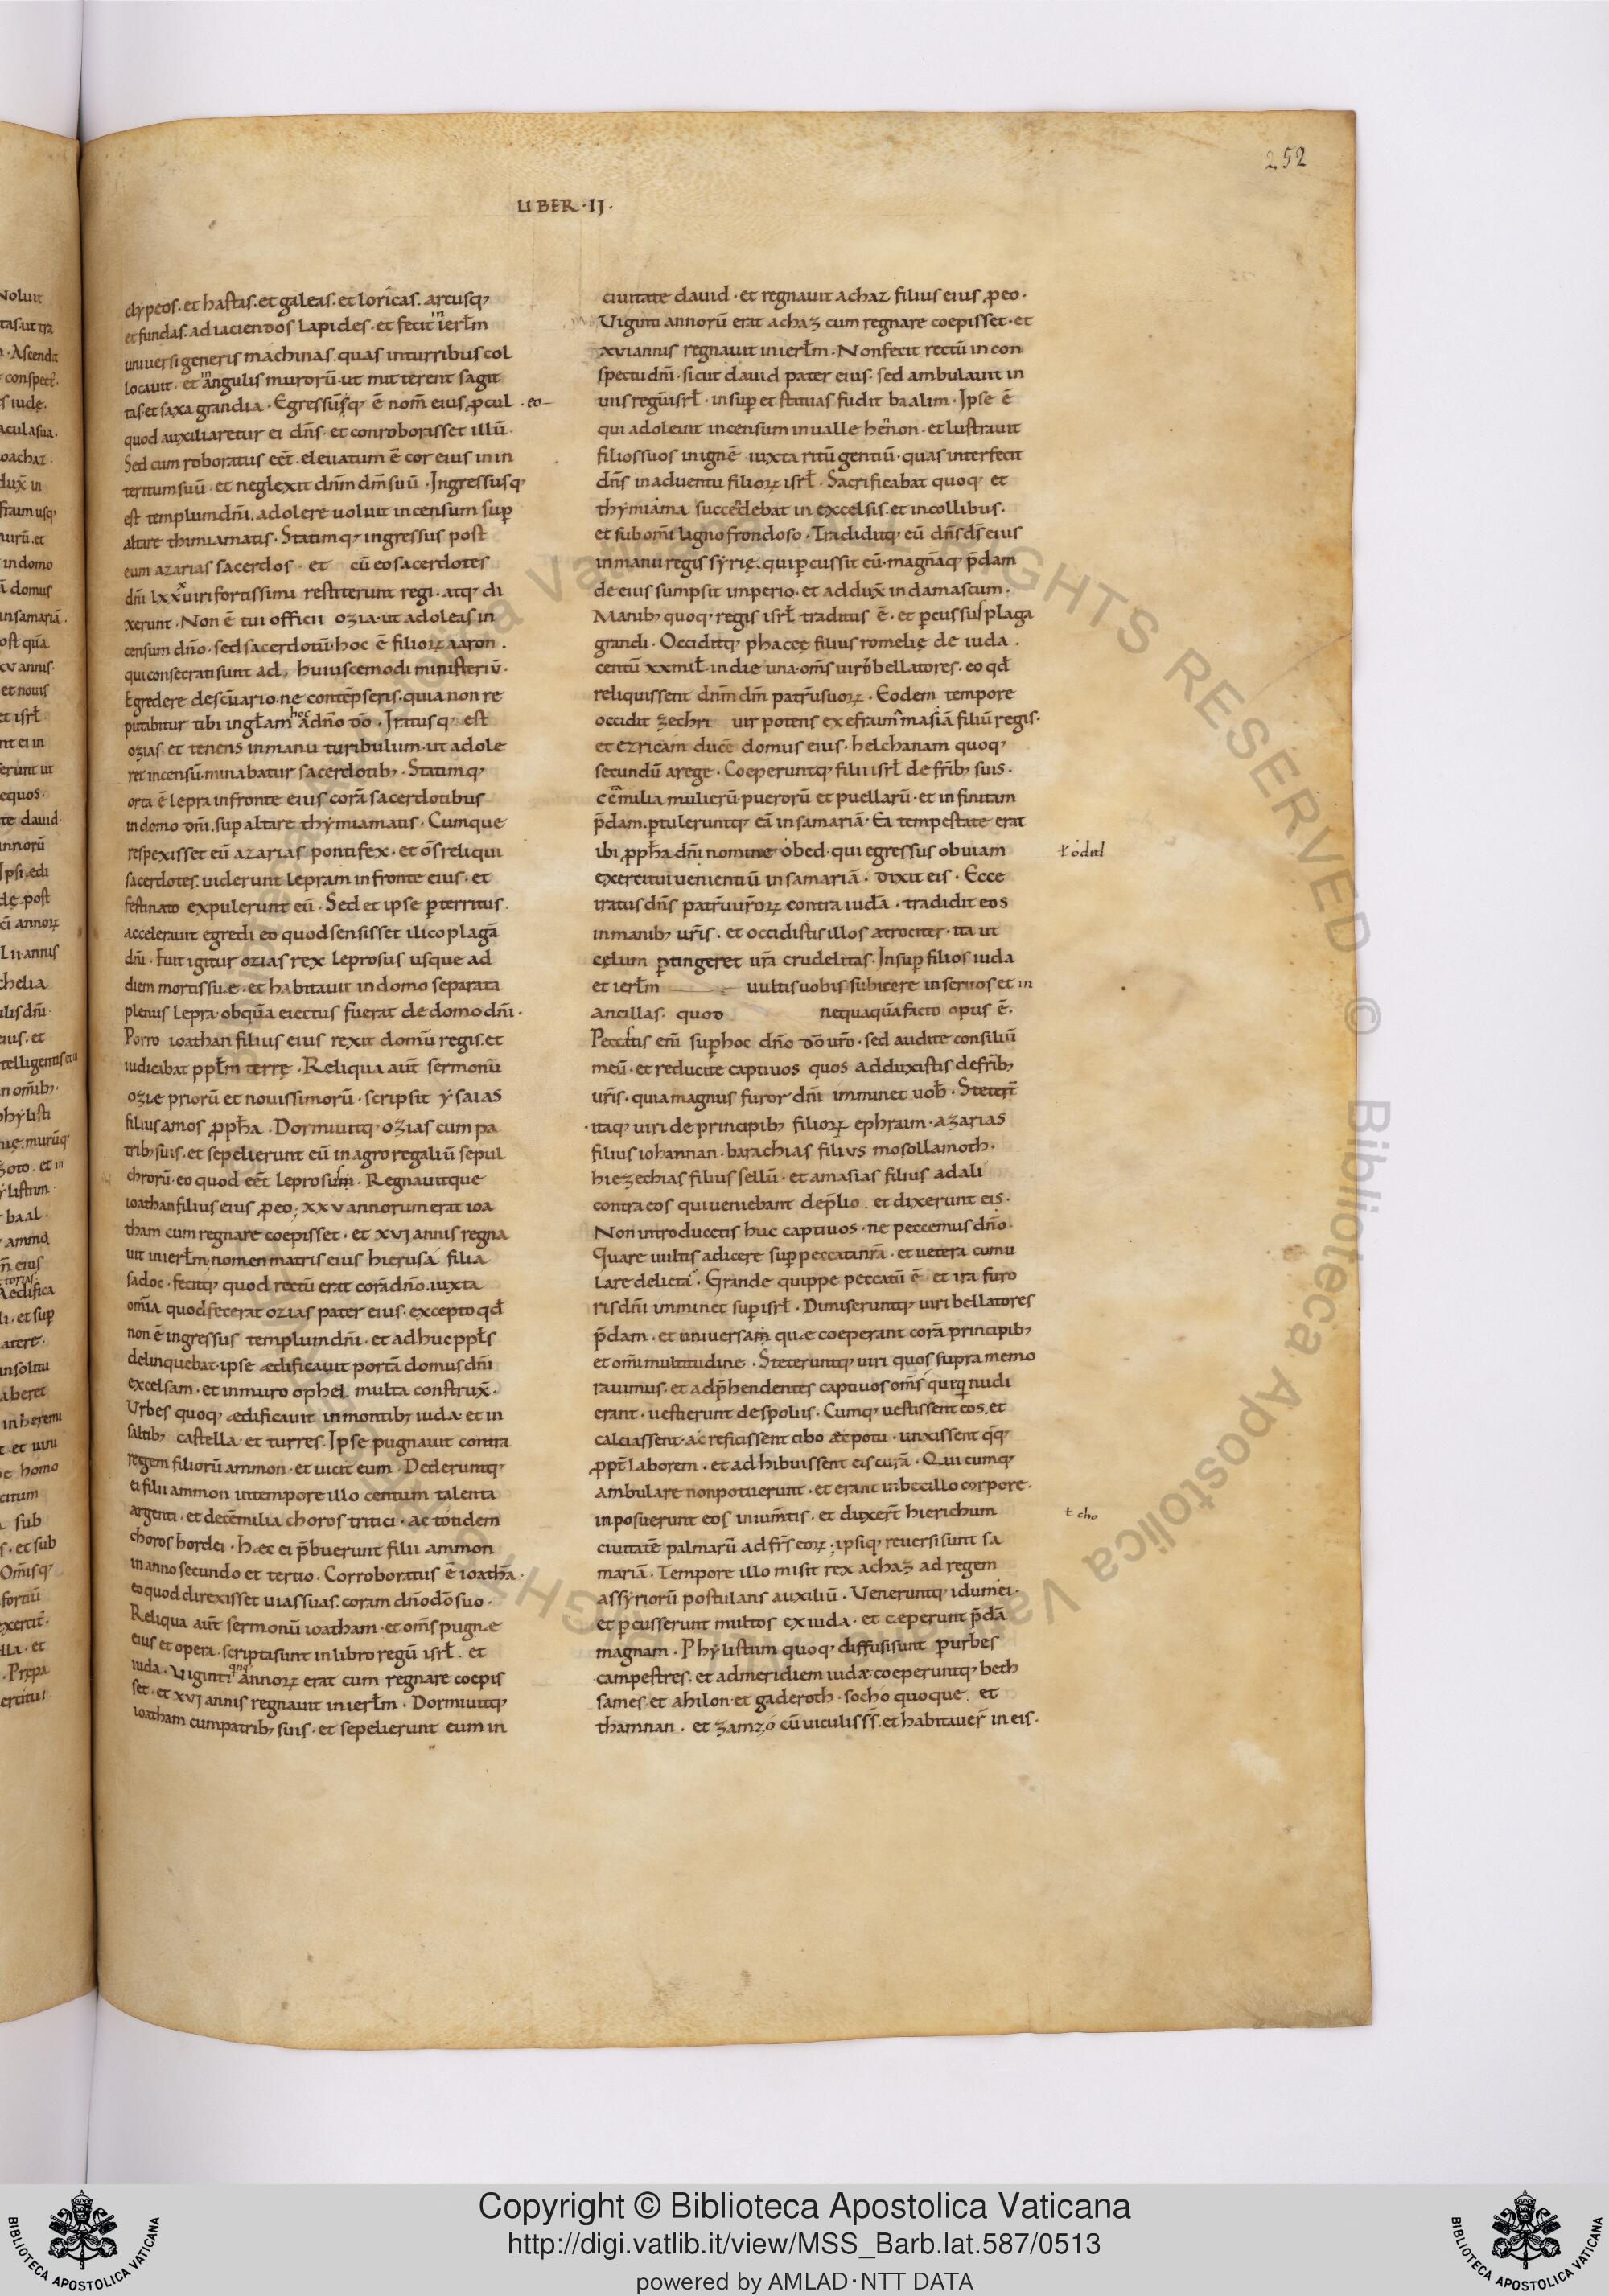 252
LIBER · IJ ·
clypeos · et hastas · et galeas · et loricas · arcusq;
et fundas · ad iaciendos lapides · et fecit in ierłm
universi generis machinas · quas inturribus col
locauit · et in angulis murorū · ut mitterent sagit
tas et saxa grandia · Egressūsq; ē nom̄ eius ꝓcul · eo
quod auxiliaretur ei dn̄s · et conroborasset illū ·
Sed cum roboratus eēt · eleuatum ē cor eius in in
teritum suū · et neglexit dn̄m dm̄ suū · Ingressusq;
est templum dn̄i · adolere uoluit incensum sup̄
altare thimiamatis · Statimq; ingressus post
eum azarias sacerdos et cū eo sacerdotes
dn̄i lxxx uiri fortissimi restiterunt regi · atq; di
xerunt · Non ē tui officii ozia · ut adoleas in
censum dn̄o · sed sacerdotū · hoc ē filioꝝ aaron ·
qui consecrati sunt ad huiuscemodi ministeriū ·
Egredere de sc̄uario · ne contēpseris · quia non re
putabitur tibi in gl̄am hoc a dn̄o dō · Iratusq; est
ozias · et tenens in manu turibulum · ut adole
ret incensū · minabatur sacerdotib; · Statimq;
orta ē lepra in fronte eius corā sacerdotibus
in domo dn̄i · sup̄ altare thymiamatis · Cumque
respexisset eū azarias pontifex · et om̄s reliqui
sacerdotes · uiderunt lepram in fronte eius · et
festinato expulerunt eū · Sed et ipse ꝑterritus ·
accelerauit egredi eo quod sensisset ilico plagā
dn̄i · Fuit igitur ozias rex leprosus usque ad
diem mortis suæ · et habitauit in domo separata
plenus lepra · ob quā eiectus fuerat de domo dn̄i ·
Porro ioathan filius eius rexit domū regis · et
iudicabat ppłm terrę · Reliqua aut̄ sermonū
ozie priorū et nouissimorū · scripsit ysaias
filius amos ꝓpħa · Dormiuitq; ozias cum pa
trib; suis · et sepelierunt eū in agro regaliū sepul
chrorū · eo quod eēt leprosus · Regnauitque
ioathan filius eius ꝓ eo; xxv annorum erat ioa
tham cum regnare coepisset · et xvj annis regna
uit in ierłm; nomen matris eius hierusa filia
sadoc · fecitq; quod rectū erat corā dn̄o · iuxta
om̄ia quod fecerat ozias pater eius · excepto qđ
non ē ingressus templum dn̄i · et adhuc ppłs
delinquebat · ipse ædificauit portā domus dn̄i
excelsam · et in muro ophel multa construx̄ ·
Urbes quoq; ædificauit in montib; iuda · et in
saltib; castella et turres · Ipse pugnauit contra
regem filiorū ammon · et uicit eum · Dederuntq;
ei filii ammon in tempore illo centum talenta
argenti · et decē milia choros tritici · ac totidem
choros hordei · hæc ei p̄buerunt filii ammon
in anno secundo et tertio · Corroboratus ē ioathā ·
eo quod direxisset uias suas · coram dn̄o dō suo ·
Reliqua aut̄ sermonū ioatham · et om̄s pugnæ
eius et opera · scripta sunt in libro regū isrł · et
iuda · Viginti qnq; annoꝝ erat cum regnare coepis
set · et xvj annis regnauit in ierłm · Dormiuitq;
ioatham cum patrib; suis · et sepelierunt eum in
ciuitate dauid · et regnauit achaz filius eius ꝓ eo ·
Viginti annorū erat achaz cum regnare coepisset · et
xvi annis regnauit in ierłm · Non fecit rectū in con
spectu dn̄i · sicut dauid pater eius · sed ambulauit in
uiis regū isrł · insup̄ et statuas fudit baalim · Ipse ē
qui adoleuit incensum in ualle hennon · et lustrauit
filios suos in ignē iuxta ritū gentiū · quas interfecit
dn̄s in aduentu filioꝝ isrł · Sacrificabat quoq; et
thymiama succendebat in excelsis · et in collibus ·
et sub om̄i ligno frondoso · Tradiditq; eū dn̄s ds̄ eius
in manu regis syrię · qui ꝑcussit eū · magnāq; p̄dam
de eius sumpsit imperio · et addux̄ in damascum ·
Manib; quoq; regis isrł traditus ē · et ꝑcussus plaga
grandi · Occiditq; phacee filius romelię de iuda ·
centū xx mił · in die una · om̄s uiros bellatores · eo qđ
reliquissent dn̄m dm̄ patrū suoꝝ · Eodem tempore
occidit zechri uir potens ex efraim masiā filiū regis ·
et ezricam ducē domus eius · helchanam quoq;
secundū a rege · Coeperuntq; filii isrł de fr̄ib; suis ·
cc milia mulierū · puerorū et puellarū · et infinitam
p̄dam · ꝑtuleruntq; eā in samariā · Ea tempestate erat
ibi ꝓpħa dn̄i nomine obed · qui egressus obuiam
ł oded
exercitui uenienti in samariā · dixit eis · Ecce
iratus dn̄s patrū ur̄oꝝ contra iudā · tradidit eos
in manib; ur̄is · et occidistis illos atrociter · ita ut
cęlum ꝑtingeret ur̄a crudelitas · Insup̄ filios iuda
et ierłm uultis uobis subicere in seruos et in
ancillas · quod nequaquā facto opus ē ·
Peccastis eni̅ sup̄ hoc dn̄o dō ur̄o · sed audite consiliū
meū · et reducite captiuos quos adduxistis de fr̄ib;
ur̄is · quia magnus furor dn̄i imminet uob̄ · Stetert̄
itaq; uiri de principib; filioꝝ ephraim · azarias
filius iohannan · barachias filius mosollamoth ·
hiezechias filius sellū · et amasias filius adali
contra eos qui ueniebant de p̄lio · et dixerunt eis ·
Non introducetis huc captiuos · ne peccemus dn̄o ·
Quare uultis adicere sup̄ peccata nr̄a · et uetera cumu
lare delicta · Grande quippe peccatū ē et ira furo
ris dn̄i imminet sup̄ isrł · Dimiseruntq; uiri bellatores
p̄dam · et universam quæ coeperant corā principib;
et om̄i multitudine · Steteruntq; uiri quos supra memo
rauimus · et adp̄hendentes captiuos · om̄s quiq; nudi
erant · uestierunt de spoliis · Cumq; uestissent eos · et
calciassent · ac reficissent cibo ac potu · unxissent q̄q;
ꝓpt̄ laborem · et adhibuissent eis curā · Quicumq;
ambulare non potuerunt · et erant inbecillo corpore ·
inposuerunt eos in ium̄tis · et duxert̄ hierichum
ł cho
ciuitatē palmarū ad fr̄s eoꝝ; ipsiq; reuersi sunt sa
mariā · Tempore illo misit rex achaz ad regem
assyriorū postulans auxiliū · Veneruntq; idumei ·
et ꝑcusserunt multos ex iuda · et cæperunt p̄dā
magnam · Phylistiim quoq; diffusi sunt ꝑ urbes
campestres · et ad meridiem iudæ · coeperuntq; beth
sames et ahilon et gaderoth · socho quoque et
thamnan · et gamzo cū uiculis ss̄ · et habitauer̄ in eis ·
Copyright © Biblioteca Apostolica Vaticana
http://digi.vatlib.it/view/MSS_Barb.lat.587/0513
powered by AMLAD·NTT DATA